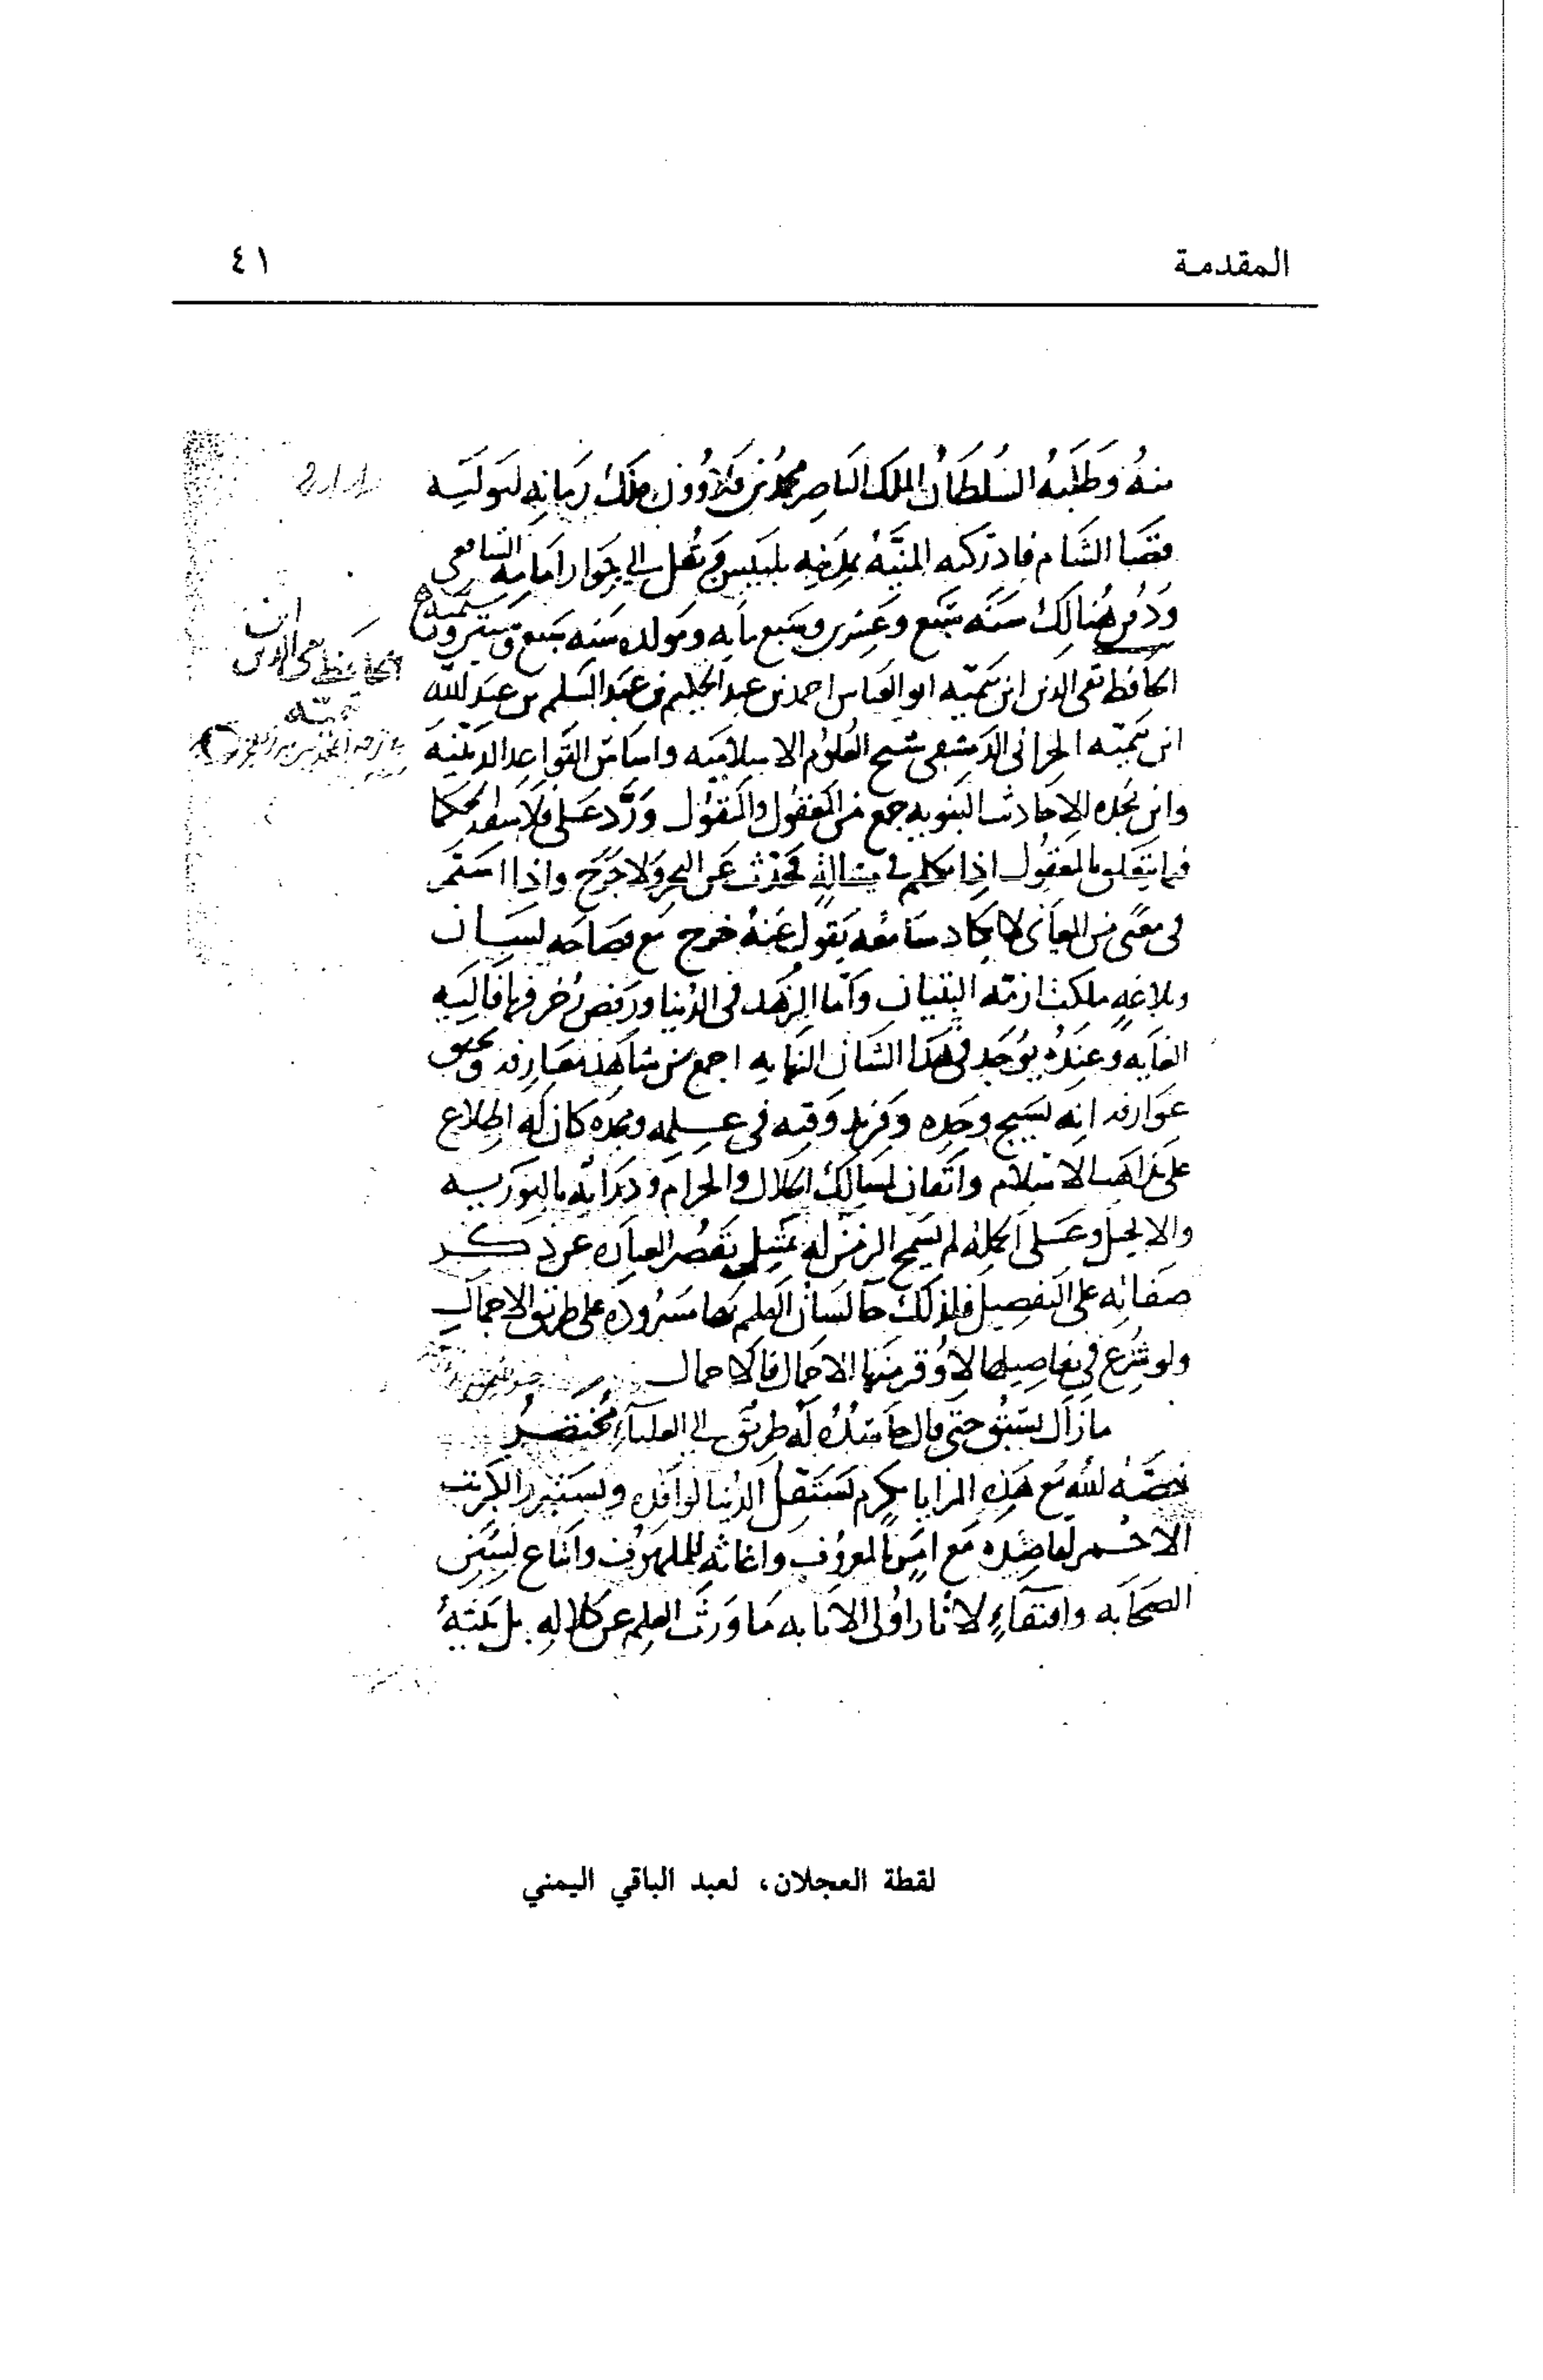 المقدمة
٤١
منهُ وَطَلَبَهُ السُّلطَانُ الملَك الناصِر محمدُ بن قلاوُون ملَكُ زمانِهِ ليولّيَه
قضا الشام فادرَكته المنيَّةُ بمدينة بلبيس ونُقل الى جوار امامه الشافعي
ودُفن هُنالكَ سنَه سَبع وعشرين وسَبع مايه ومَولده سَنه سَبع وستين وستمية
الحَافظ تقي الدين ابن تيميّه ابو العَباس احمد بن عبد الحليم بن عَبد السَّلم بن عَبد الله
ابن تيميّه الحراني الدمشقي شيخ العُلوُم الاسلاميَه واسَاس القَواعِد الديِنيه
وابن بَجده الاحَاديث النبَويه جمع من المعقول والمنقول وَرَدَّ عَلى فلاسفه
فيما يتعلق بالمعقُول اذا تكلم في مسَالةٍ فحدّث عَن البحر وَلا حَرَج واذا استمَر
في معنًى من المعَاني لا يكاد سَامعُه يَقول عَنهُ خرج مع فصَاحه لسَان
وبلاغهٍ ملكت ازمّه البيَان وَامّا الزُهد في الدُنيا ورَفض زُخرفها فاليه
الغايه وَعندهُ يوُجَد في هذا الشان النهايه اجمع من شاهَد معَارفه وتحقق
عَوارفه انه نسَيج وحدِه وفَريد وَقتِه في عِلمِه ومجده كان لَه اطلاع
على مذاهب الاسْلام واتقان لمسَالك الحلال والحرام ودرايَه بالتورَيه
والانجيل وعَلى الجملة لم يسمح الزمن له بمثيل تقصُر العبارَه عن ذكر
صفاته على التفصيل فلذلك حَال لسَان القلم مسرودة على طريق الاجمال
ولو شرع في تفاصيلها لاوُقر منها الاحمال فالاحمال
مازال يسَبق حتى قال حَاسدُهُ لَه طريق الى العلياء مُختصَرُ
خصَّه الله مع هَذِه المزايا بكرمٍ يستَقِل الدُنيا لوافده ويستنزر الكبريت
الاحمر لقاصده مَع امرٍ بالمعروُف واغاثه للملهوُف واتباع لسُنن
الصحابه واقتفاءٍ لاثار اولى الانابه مَا وَرثَ العِلم عن كلالهِ بل بَيتهُ
ابن
الحافظ تقي الدين
تيميّه
لقطة العجلان، لعبد الباقي اليمني